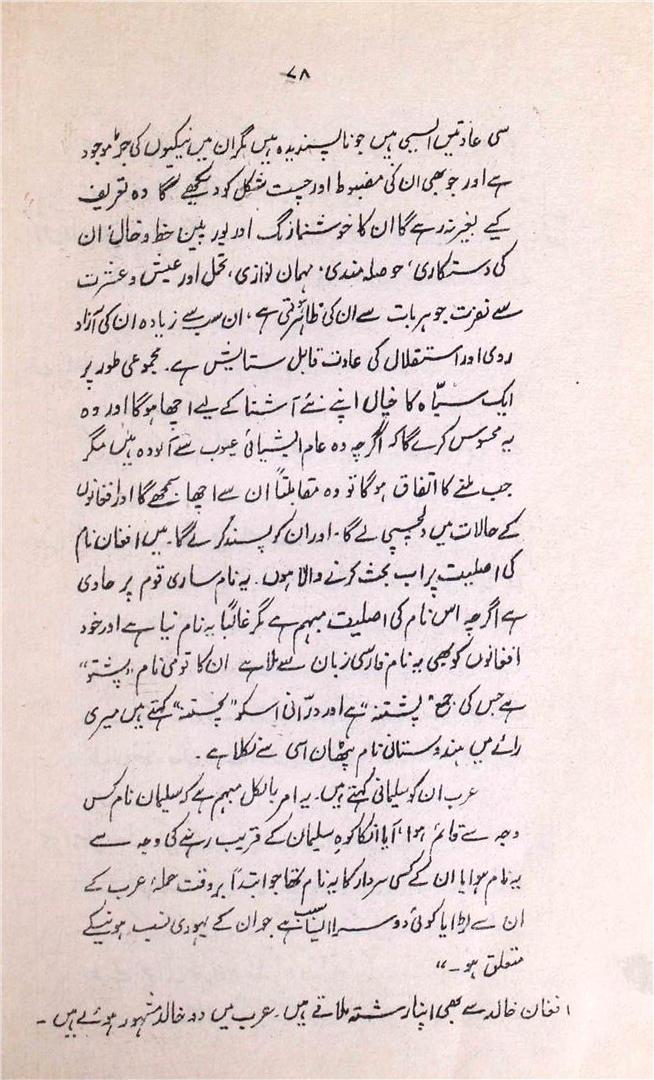 ۷۸
سی عادتیں ایسی ہیں جو ناپسندیدہ ہیں مگر ان میں نیکیوں کی جڑ موجود
ہے اور جو بھی ان کی مضبوط اور چست شکل کو دیکھے گا وہ تعریف
کیے بغیر نہ رہے گا ان کا خوشنما رنگ اور یورپین خط و خال، ان
کی دستکاری، حوصلہ مندی، مہمان نوازی، تحمل اور عیش و عشرت
سے نفرت جو ہر بات سے ان کی ظاہر ہوتی ہے، ان سب سے زیادہ ان کی آزاد
روی اور استقلال کی عادت قابل ستایش ہے۔ مجموعی طور پر
ایک سیّاہ کا خیال اپنے نئے آشنا کے لیے اچھا ہوگا اور وہ
یہ محسوس کرے گا کہ اگرچہ وہ عام ایشیائی عیوب سے آلودہ ہیں مگر
جب ملنے کا اتفاق ہوگا تو وہ مقابلتاً ان سے اچھا سمجھے گا اور افغانوں
کے حالات میں دلچسپی لے گا۔ اور ان کو پسند کرے گا۔ میں افغان نام
کی اصلیت پر اب بحث کرنے والا ہوں۔ یہ نام ساری قوم پر حاوی
ہے اگرچہ اس نام کی اصلیت مبہم ہے مگر غالباً یہ نام نیا ہے اور خود
افغانوں کو بھی یہ نام فارسی زبان سے ملا ہے ان کا قومی نام "پشتو"
ہے جس کی جمع "پشتنہ" ہے اور درّانی اسکو "پختنہ" کہتے ہیں میری
رائے میں ہندوستانی نام پٹھان اسی سے نکلا ہے۔
عرب ان کو سلیمانی کہتے ہیں۔ یہ امر بالکل مبہم ہے کہ سلیمان نام کس
وجہ سے قائم ہوا، آیا انکا کوہ سلیمان کے قریب رہنے کی وجہ سے
یہ نام ہوا یا ان کے کسی سردار کا یہ نام تھا جو ابتداً بروقت حملۂ عرب کے
ان سے لڑا یا کوئی دوسرا ایسا سبب ہے جو ان کے یہودی نسب ہونیکے
متعلق ہو۔"
افغان خالد سے بھی اپنا رشتہ ملاتے ہیں۔ عرب میں دو خالد مشہور ہوئے ہیں۔